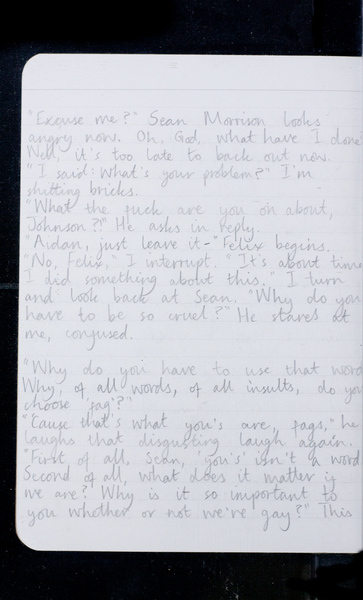 "Excuse me?" Sean Morrison looks
angry now. Oh, God, what have I done?
Well, it's too late to back out now.
"I said: What's your problem?" I'm
shitting bricks.
"What the fuck are you on about,
Johnson?!" He asks in reply.
"Aidan, just leave it-" Felix begins.
"No, Felix," I interrupt. "It's about time
I did something about this." I turn
and look back at Sean. "Why do you
have to be so cruel?" He stares at
me, confused.
"Why do you have to use that word
Why, of all words, of all insults, do you
choose 'fag'?"
"'Cause that's what you's are, fags," he
laughs that disgusting laugh again.
"First of all, Sean, 'you's' isn't a word
Second of all, what does it matter if
we are? Why is it so important to
you whether or not we're gay?" This